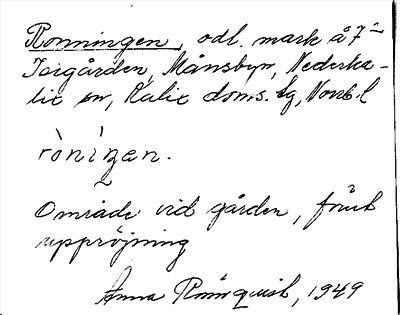 Ronningen, odl. mark å 7
Isigården, Månsbyn, Nederka-
lix sn, Kalix doms. tg, Nonb. l
rònìŋen.
Område vid gården, förut
uppröjning
Anna Rönnquist, 1949